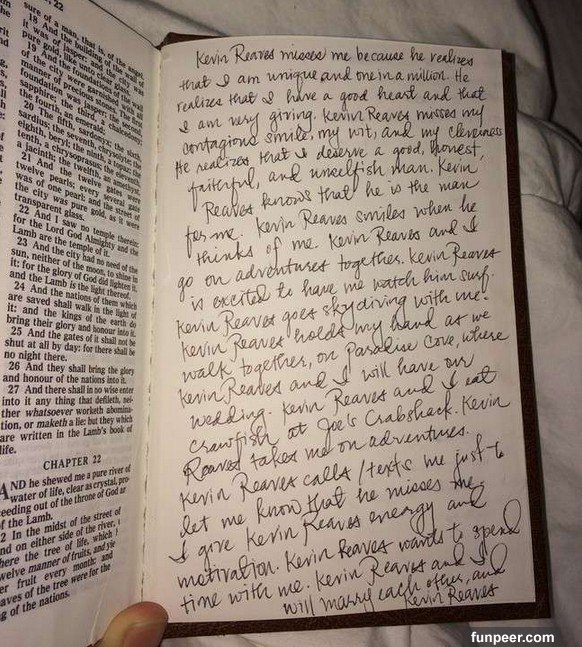 22
sure of a man, that is, of the angel.
18 And the building of the wall
was of jasper: and the city was
pure gold, like unto clear glass.
19 And the foundations of the wall
of the city were garnished with all
manner of precious stones. The first
foundation was jasper; the second,
sapphire; the third, a chalcedony;
the fourth, an emerald;
20 The fifth, sardonyx; the sixth,
sardius; the seventh, chrysolyte; the
eighth, beryl; the ninth, a topaz; the
tenth, a chrysoprasus; the eleventh,
a jacinth; the twelfth, an amethyst.
21 And the twelve gates were
twelve pearls; every several gate
was of one pearl: and the street of
the city was pure gold, as it were
transparent glass.
22 And I saw no temple therein:
for the Lord God Almighty and the
Lamb are the temple of it.
23 And the city had no need of the
sun, neither of the moon, to shine in
it: for the glory of God did lighten it,
and the Lamb is the light thereof.
24 And the nations of them which
are saved shall walk in the light of
it: and the kings of the earth do
bring their glory and honour into it.
25 And the gates of it shall not be
shut at all by day: for there shall be
no night there.
26 And they shall bring the glory
and honour of the nations into it.
27 And there shall in no wise enter
into it any thing that defileth, nei-
ther whatsoever worketh abomina-
tion, or maketh a lie: but they which
are written in the Lamb's book of
life.
CHAPTER 22
AND he shewed me a pure river of
water of life, clear as crystal, pro-
ceeding out of the throne of God and
of the Lamb.
2 In the midst of the street of
and on either side of the river,
there the tree of life, which
twelve manner of fruits, and yie
er fruit every month: and
eaves of the tree were for the
g of the nations.
Kevin Reaves misses me because he realizes
that I am unique and one in a million. He
realizes that I have a good heart and that
I am very giving. Kevin Reaves misses my
contagious smile, my wit, and my cleverness
He realizes that I deserve a good, honest,
faithful, and unselfish man. Kevin
Reaves knows that he is the man
for me. Kevin Reaves smiles when he
thinks of me. Kevin Reaves and I
go on adventures together. Kevin Reaves
is excited to have me watch him surf.
Kevin Reaves goes skydiving with me.
Kevin Reaves holds my hand as we
walk together, on Paradise Cove, where
Kevin Reaves and I will have our
wedding. Kevin Reaves and I eat
crawfish at Joe's Crabshack. Kevin
Reaves takes me on adventures.
Kevin Reaves calls/texts me just to
let me know that he misses me.
I give Kevin Reaves energy and
motivation. Kevin Reaves wants to spend
time with me. Kevin Reaves and I
will marry each other, and
Kevin Reaves
funpeer.com